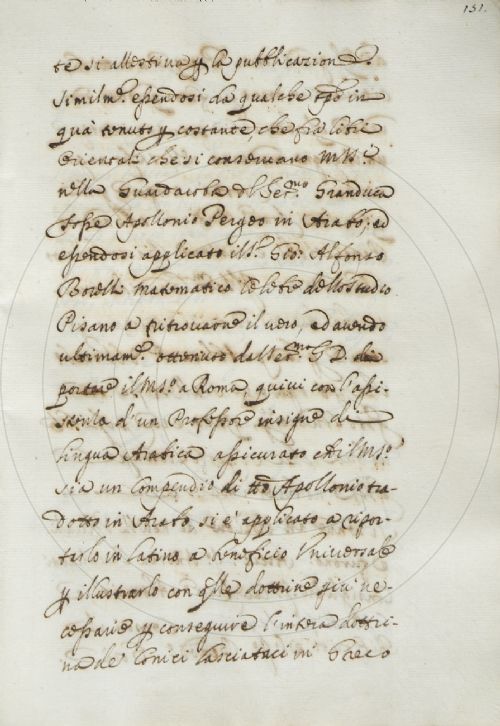 151.
te si allestiva p la pubblicazione.
Similm.e essendosi da qualche tpo in
qua tenuto p costante, che fra libri
Orientali che si conservano MSS.
nella Guardaroba del Ser.mo Granduca
fosse Apollonio Pergeo in Arabo; ed
essendosi applicato il S.r Gio: Alfonso
Borelli Matematico celebre dello Studio
Pisano a ritrovarne il vero, ed avendo
ultimam.e ottenuto dal Ser.mo G. D. di
portare il MS.o a Roma, quivi con l'assi-
stenza d'un Professore insigne di
lingua Arabica assicurato che il MS.o
sia un Compendio di tto Apollonio tra-
dotto in Arabo si è applicato a ripor-
tarlo in latino a benefizio Universale
p illustrarlo con qlle dottrine più ne-
cessarie p conseguire l'intera dottri-
na de' Conici lasciataci in Greco